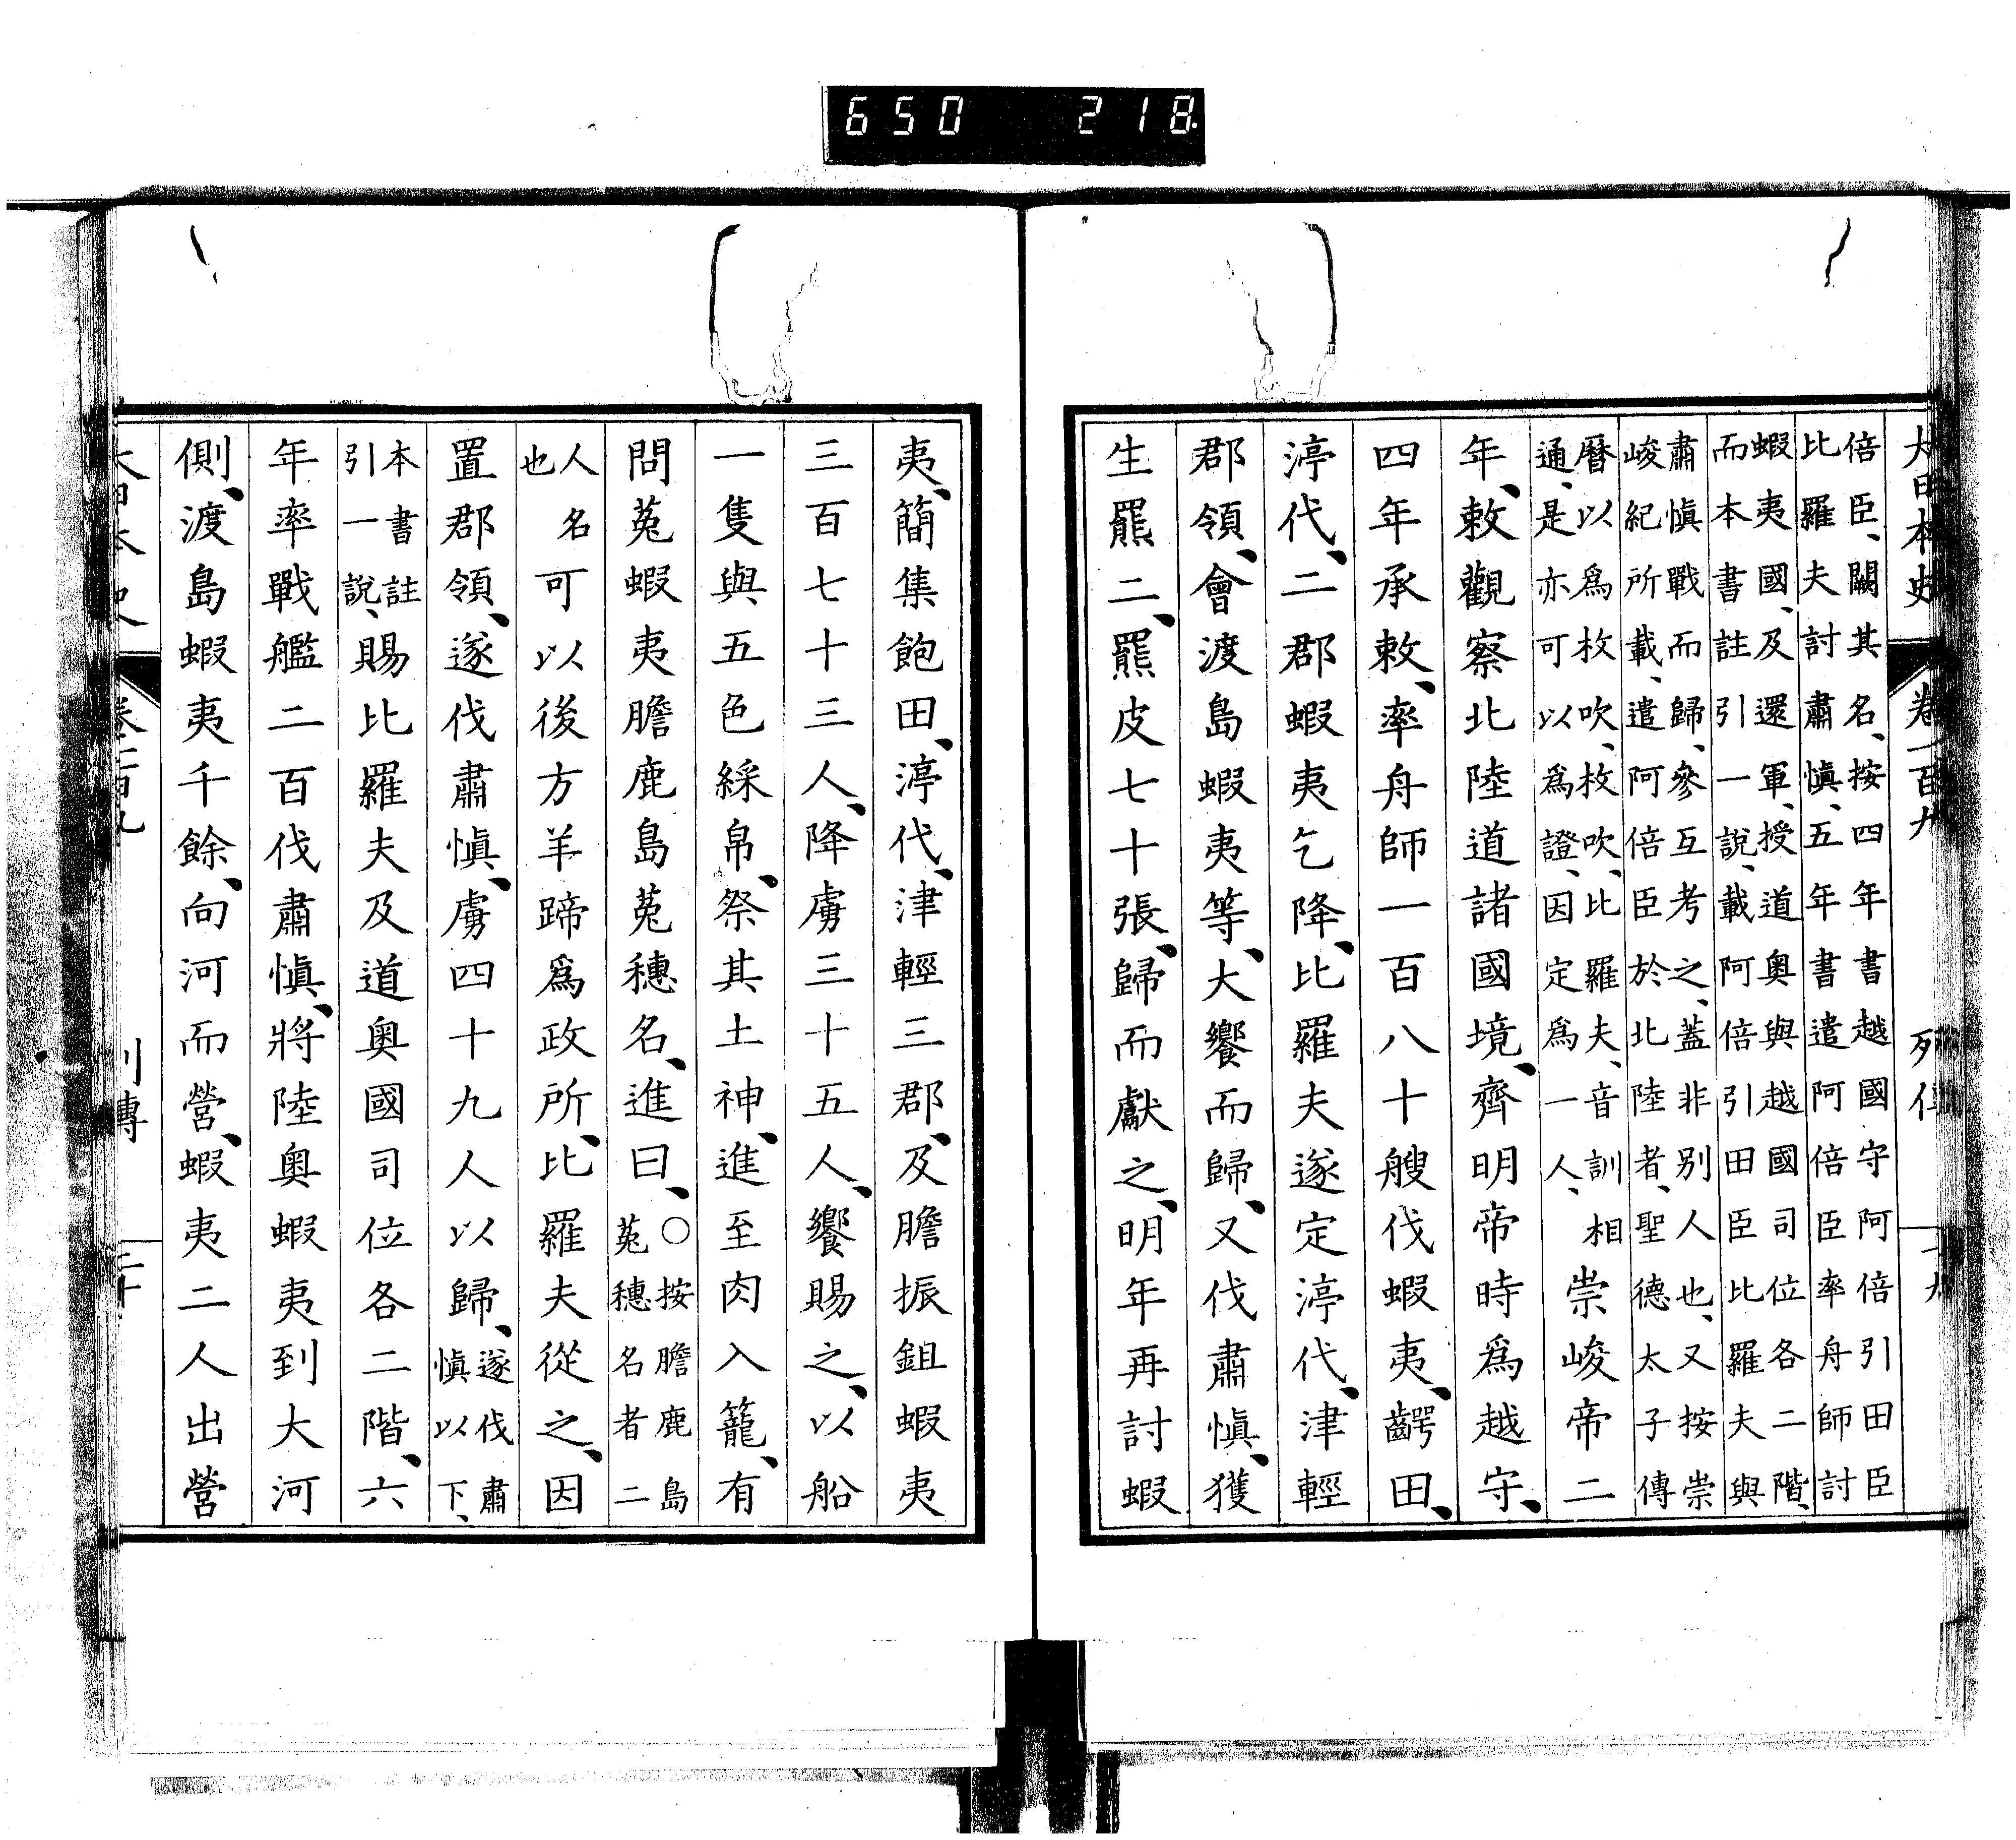 650 218
大日本史 卷一百九 列傳 十九
倍臣、闕其名、按四年書越國守阿倍引田臣
比羅夫討肅愼、五年書遣阿倍臣率舟師討
蝦夷國、及還軍、授道奧與越國司位各二階、
而本書註引一說、載阿倍引田臣比羅夫與
肅愼戰而歸、參互考之、蓋非別人也、又按崇
峻紀所載、遣阿倍臣於北陸者、聖德太子傳
曆以爲枚吹、枚吹、比羅夫、音訓相
通、是亦可以爲證、因定爲一人、
崇峻帝二
年、敕觀察北陸道諸國境、齊明帝時爲越守、
四年承敕、率舟師一百八十艘伐蝦夷、齶田、
渟代、二郡蝦夷乞降、比羅夫遂定渟代、津輕
郡領、會渡島蝦夷等、大饗而歸、又伐肅愼、獲
生羆二、羆皮七十張、歸而獻之、明年再討蝦
夷、簡集飽田、渟代、津輕三郡、及膽振鉏蝦夷
三百七十三人、降虜三十五人、饗賜之、以船
一隻與五色綵帛、祭其土神、進至肉入籠、有
問菟蝦夷膽鹿島菟穗名、進曰、
○按膽鹿島
菟穗名者二
人名
也
可以後方羊蹄爲政所、比羅夫從之、因
置郡領、遂伐肅愼、虜四十九人以歸、
遂伐肅
愼以下、
本書註
引一說、
賜比羅夫及道奧國司位各二階、六
年率戰艦二百伐肅愼、將陸奧蝦夷到大河
側、渡島蝦夷千餘、向河而營、蝦夷二人出營
大日本史 卷一百九 列傳 二十